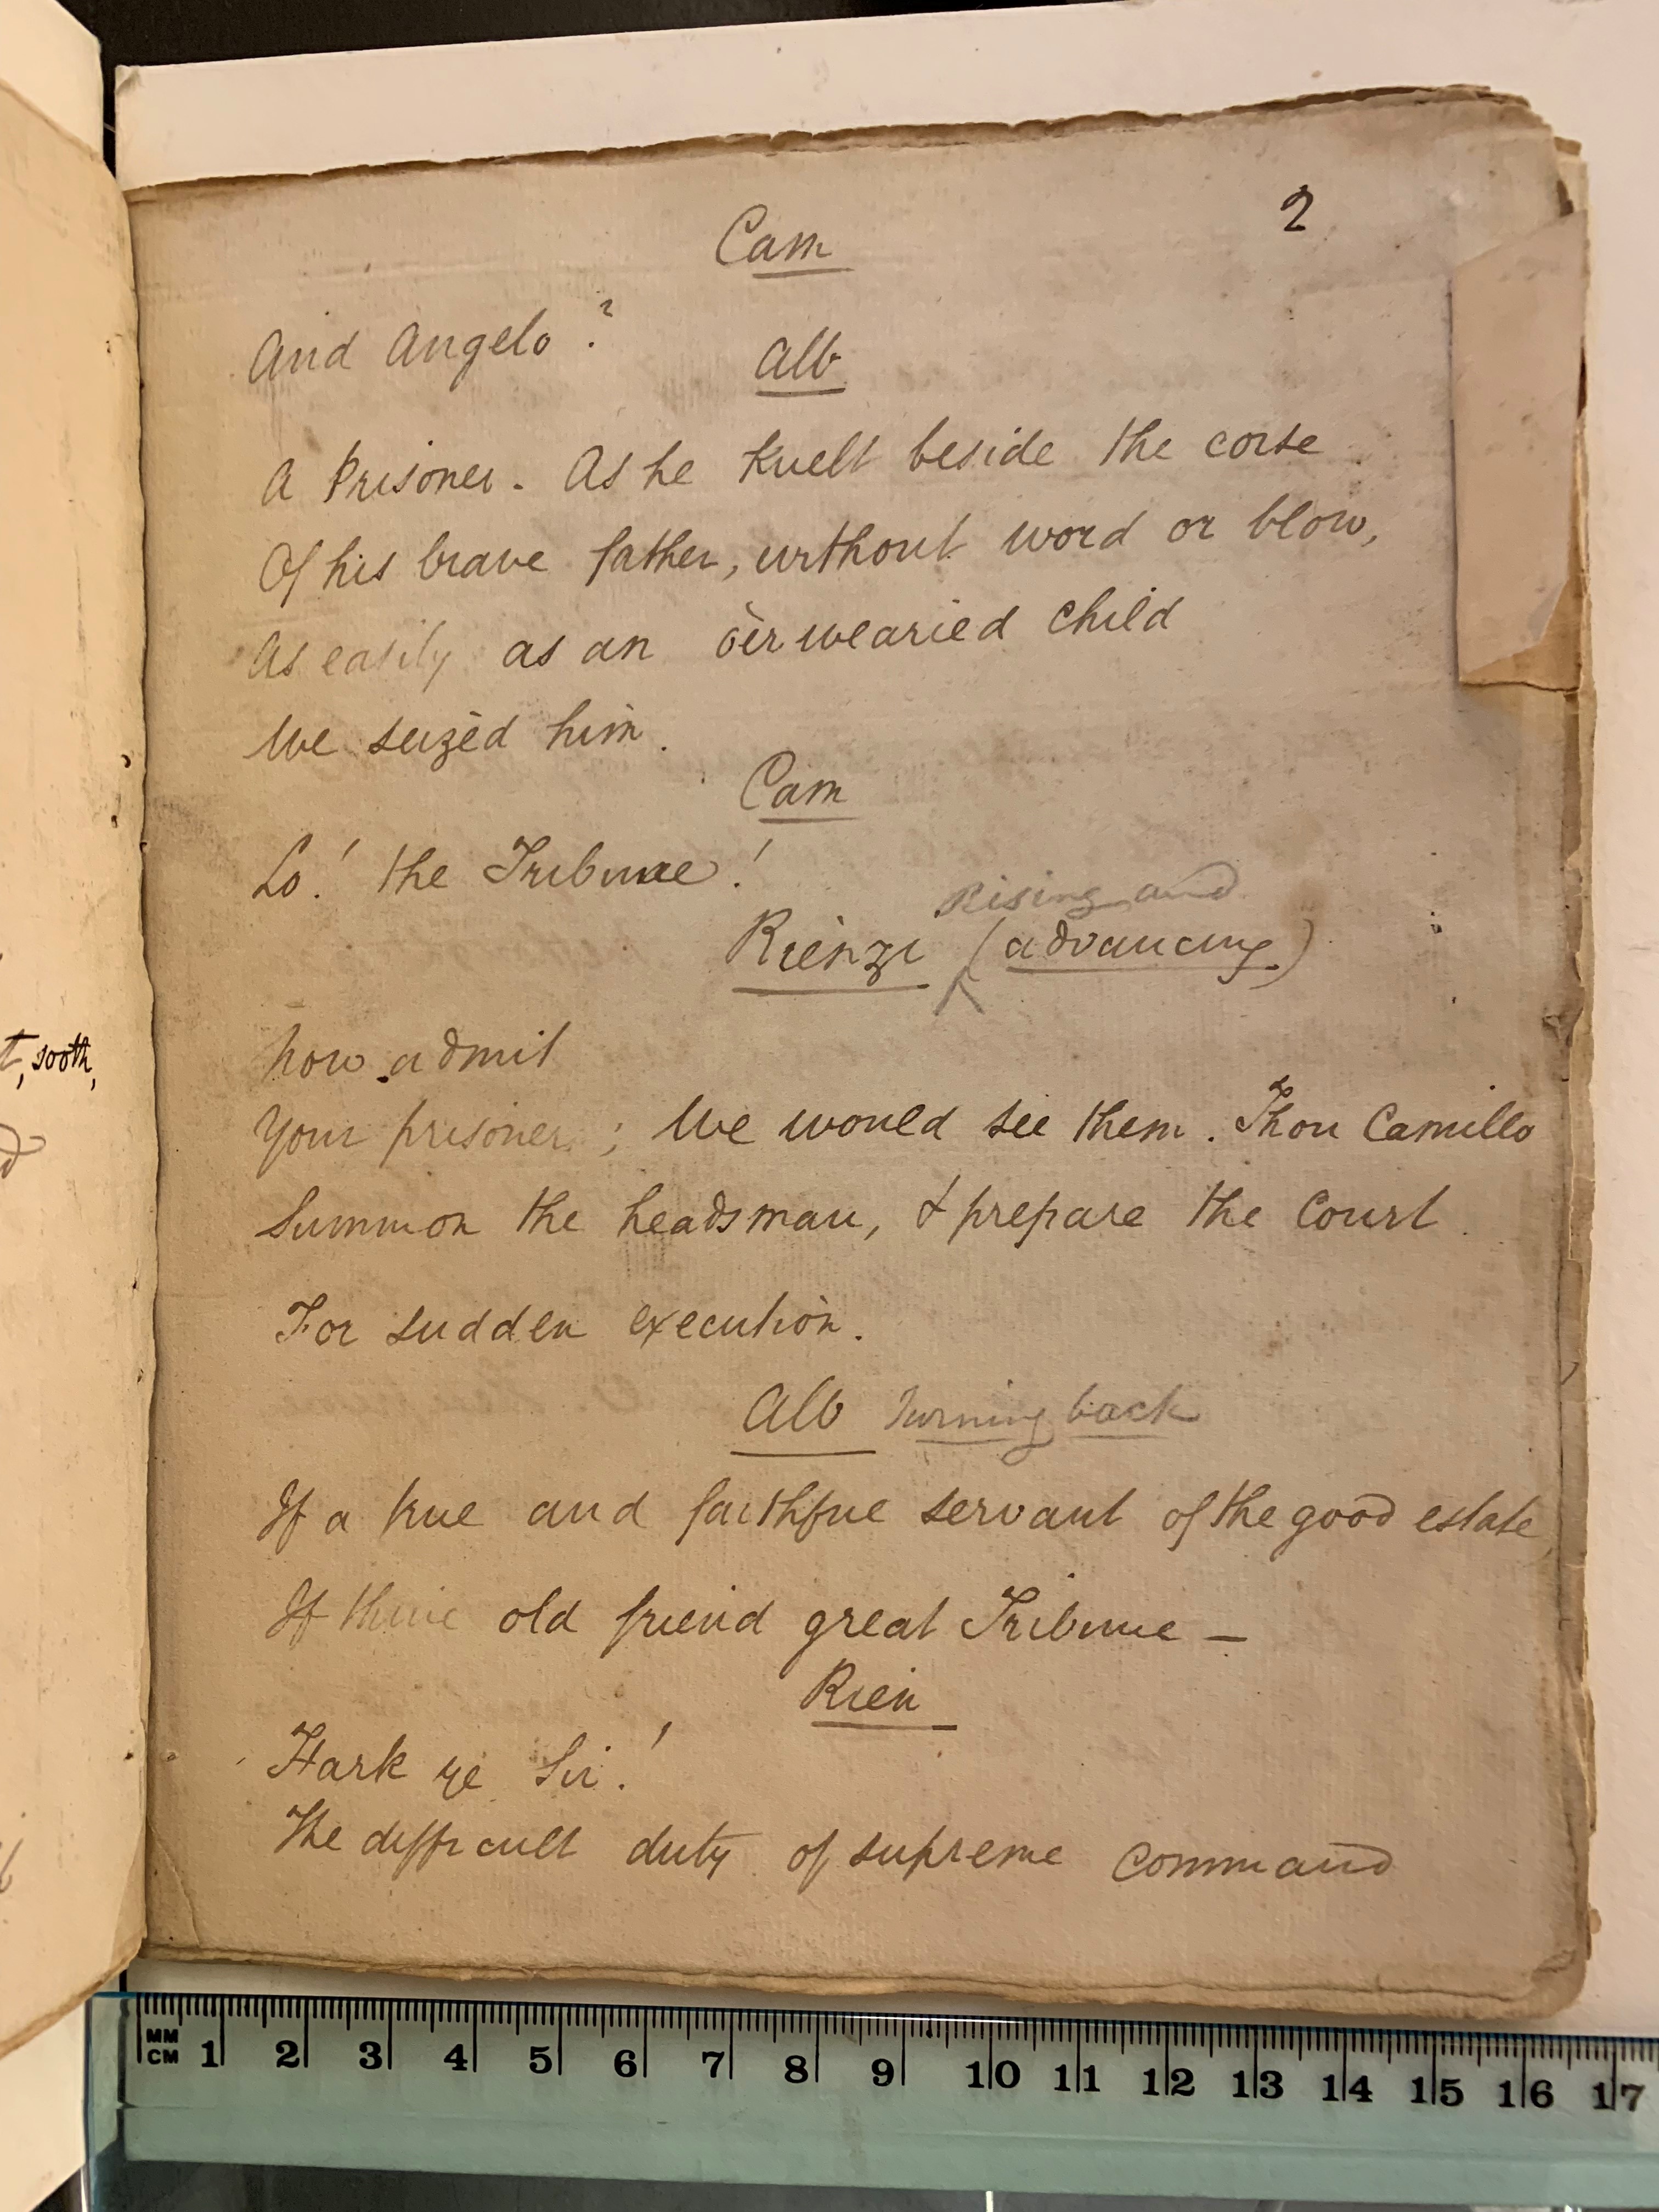 2
Cam
And Angelo?
Alb
A Prisoner. As he knelt beside the corse
Of his brave father, without word or blow,
As easily as an o'erwearied child
We seized him.
Cam
Lo! the Tribune!
Rising and
Rienzi (advancing)
Now admit
Your prisoners; We would see them. Thou Camillo
Summon the headsman, & prepare the Court
For sudden execution.
Alb turning back
If a true and faithful servant of the good estate,
If thine old friend great Tribune —
Rien
Hark ye Sir!
The difficult duty of supreme command
t, sooth,
MM
CM 1 2 3 4 5 6 7 8 9 10 11 12 13 14 15 16 17